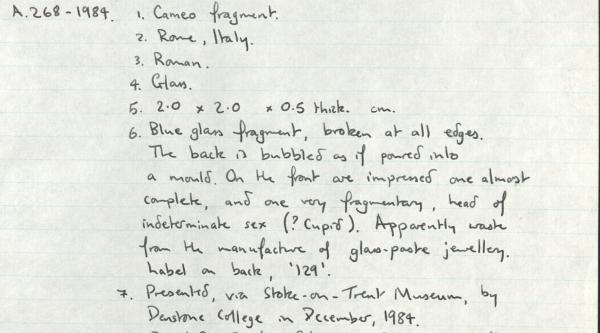 A.268-1984. 1. Cameo fragment.
2. Rome, Italy.
3. Roman.
4. Glass.
5. 2.0 x 2.0 x 0.5 thick. cm.
6. Blue glass fragment, broken at all edges.
The back is bubbled as if poured into
a mould. On the front are impressed one almost
complete, and one very fragmentary, head of
indeterminate sex (? Cupid). Apparently waste
from the manufacture of glass-paste jewellery.
Label on back, '129'.
7. Presented, via Stoke-on-Trent Museum, by
Denstone College in December, 1984.